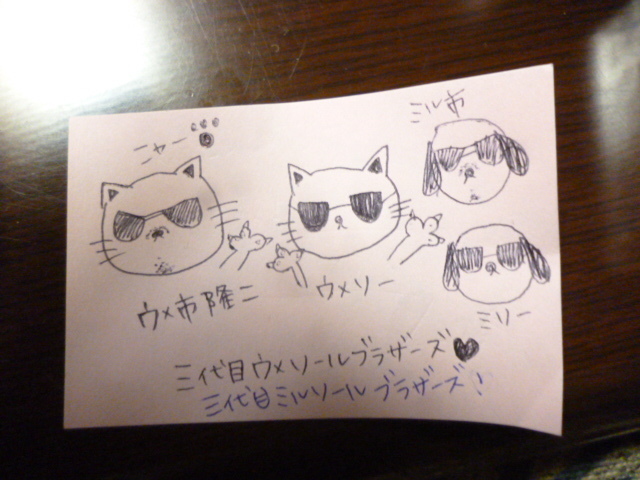 ミル市
ニャー
ウメ市隆二
ウメソー
ミソー
三代目ウメソールブラザーズ♥
三代目ミルソールブラザーズ!